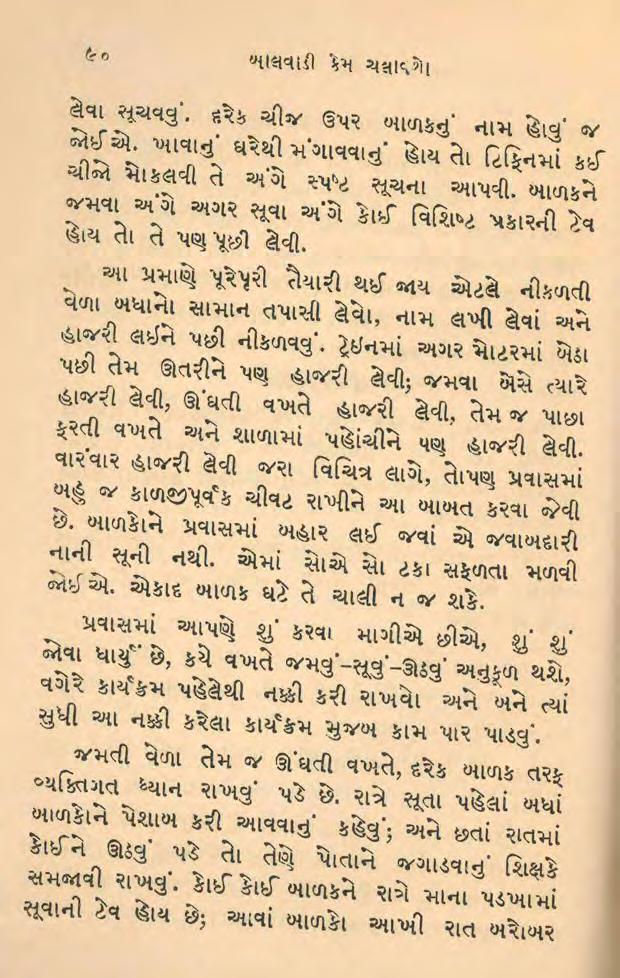 ૯૦ બાલવાડી કેમ ચલાવશો
લેવા સૂચવવું. દરેક ચીજ ઉપર બાળકનું નામ હોવું જ
જોઈએ. ખાવાનું ઘરેથી મંગાવવાનું હોય તો ટિફિનમાં કઈ
ચીજો મોકલવી તે અંગે સ્પષ્ટ સૂચના આપવી. બાળકને
જમવા અંગે અગર સૂવા અંગે કોઈ વિશિષ્ટ પ્રકારની ટેવ
હોય તો તે પણ પૂછી લેવી.
આ પ્રમાણે પૂરેપૂરી તૈયારી થઈ જાય એટલે નીકળતી
વેળા બધાનો સામાન તપાસી લેવો, નામ લખી લેવાં અને
હાજરી લઈને પછી નીકળવવું. ટ્રેઇનમાં અગર મોટરમાં બેઠા
પછી તેમ ઊતરીને પણ હાજરી લેવી; જમવા બેસે ત્યારે
હાજરી લેવી, ઊંઘતી વખતે હાજરી લેવી, તેમ જ પાછા
ફરતી વખતે અને શાળામાં પહોંચીને પણ હાજરી લેવી.
વારંવાર હાજરી લેવી જરા વિચિત્ર લાગે, તોપણ પ્રવાસમાં
બહુ જ કાળજીપૂર્વક ચીવટ રાખીને આ બાબત કરવા જેવી
છે. બાળકોને પ્રવાસમાં બહાર લઈ જવાં એ જવાબદારી
નાની સૂની નથી. એમાં સોએ સો ટકા સફળતા મળવી
જોઈએ. એકાદ બાળક ઘટે તે ચાલી ન જ શકે.
પ્રવાસમાં આપણે શું કરવા માગીએ છીએ, શું શું
જોવા ધાર્યું છે, કયે વખતે જમવું-સૂવું-ઊઠવું અનુકૂળ થશે,
વગેરે કાર્યક્રમ પહેલેથી નક્કી કરી રાખવો અને બને ત્યાં
સુધી આ નક્કી કરેલા કાર્યક્રમ મુજબ કામ પાર પાડવું.
જમતી વેળા તેમ જ ઊંઘતી વખતે, દરેક બાળક તરફ
વ્યક્તિગત ધ્યાન રાખવું પડે છે. રાત્રે સૂતા પહેલાં બધાં
બાળકોને પેશાબ કરી આવવાનું કહેવું; અને છતાં રાતમાં
કોઈને ઊઠવું પડે તો તેણે પોતાને જગાડવાનું શિક્ષકે
સમજાવી રાખવું. કોઈ કોઈ બાળકને રાત્રે માના પડખામાં
સૂવાની ટેવ હોય છે; આવાં બાળકો આખી રાત બરોબર